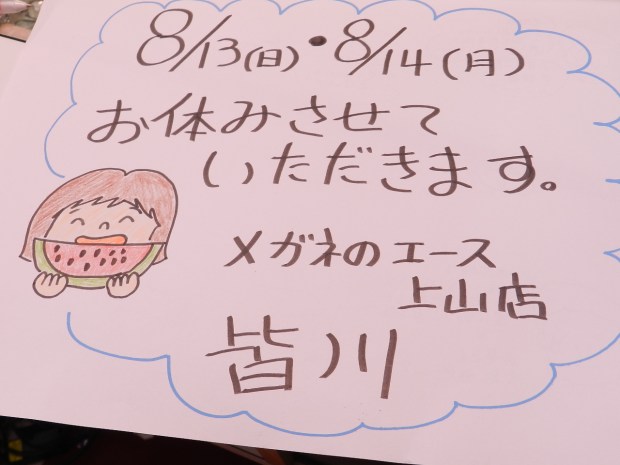 8/13(日)・8/14(月)
お休みさせて
いただきます。
メガネのエース
上山店
皆川